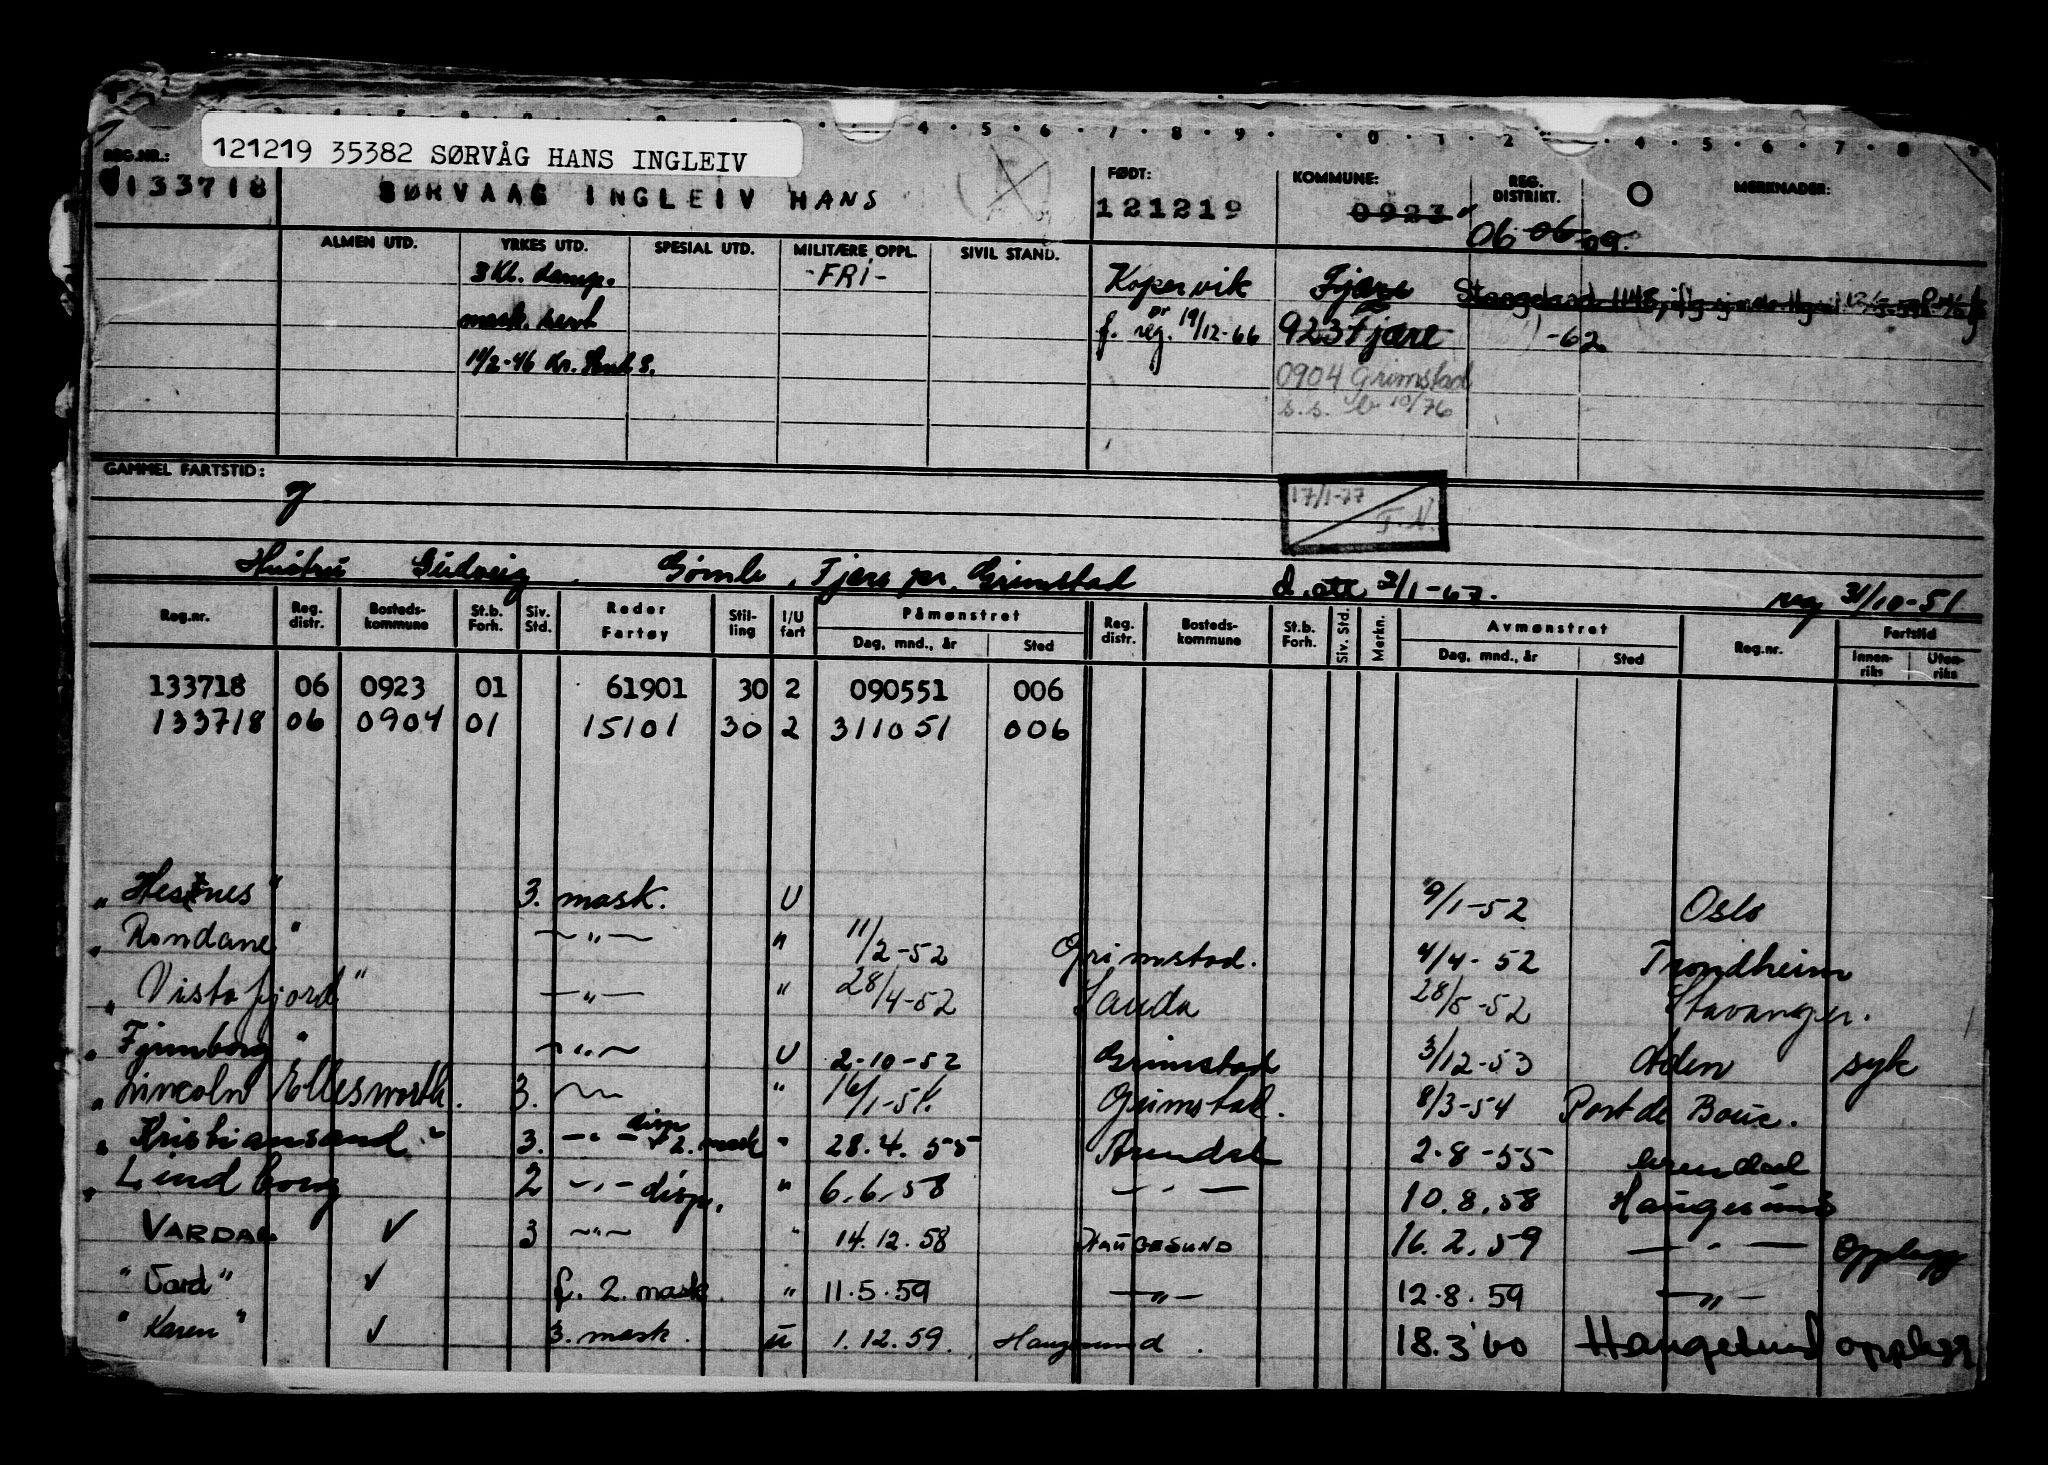 121219 35382 SØRVÅG HANS INGLEIV
REG.NR.: FØDT: KOMMUNE: REG. DISTRIKT. MERKNADER:
133718 SØRVAAG INGLEIV HANS 121219 0923 06 06 09.
ALMEN UTD. YRKES UTD. SPESIAL UTD. MILITÆRE OPPL. SIVIL STAND.
3 Kl. damp. -FRI- Kopervik Fjære
mask. sert f. reg. 19/12-66 923 Fjære -62
11/2-46 Kr. Sand S. 0904 Grimstad
s.s. 10/76
GAMMEL FARTSTID:
17/1-77
T.N.
Hustru Gudveig, Gømle, Fjære pr. Grimstad d. att 3/1-67. reg 31/10-51
Reg.nr. Reg. distr. Bosteds-kommune St.b. Forh. Siv. Std. Reder Fartøy Stil-ling I/U fart Påmønstret Reg. distr. Bosteds-kommune St.b. Forh. Siv. Std. Merkn. Avmønstret Reg.nr. Fartstid
Dag, mnd., år Sted Dag, mnd., år Sted Innen-riks Uten-riks
133718 06 0923 01 61901 30 2 090551 006
133718 06 0904 01 15101 30 2 311051 006
"Hesnes" 3. mask. U 9/1-52 Oslo
"Rondane" —"— " 11/2-52 Grimstad. 4/4-52 Trondheim
"Vistafjord" —"— " 28/4-52 Sauda 28/5-52 Stavanger.
"Fjernborg" —"— U 2-10-52 Grimstad 3/12-53 Aden syk
"Lincoln Ellesworth. 3. " 16/1-54. Grimstad. 8/3-54 Port de Bouc.
"Kristiansand" 3. —"— disp 2. mask " 28.4.55 Arendal 2-8-55 Arendal
"Lindborg 2 —"— disp. " 6.6.58 —"— 10.8.58 Haugesund
VARDAL ✓ 3 —"— " 14.12.58 HAUGESUND 16.2.59 —"— Opplagg
"Vard" ✓ f. 2. mask. " 11.5.59 —"— 12.8.59 —"—
"Karen" ✓ 3. mask. U 1.12.59. Haugesund. 18.3 60 Haugesund opplagg